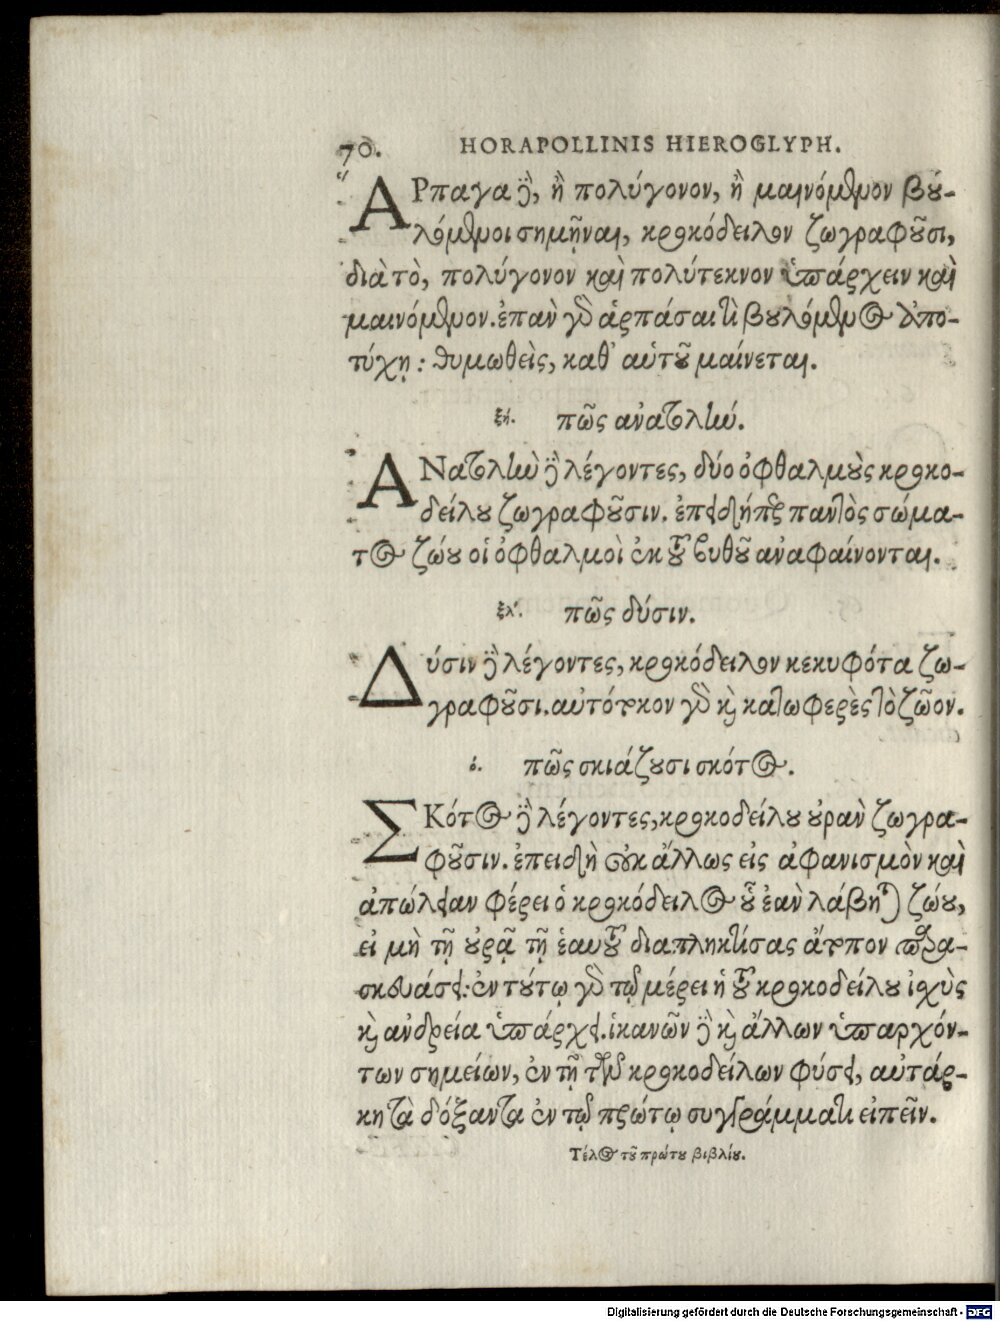 70. HORAPOLLINIS HIEROGLYPH.
ΑΡπαγα δὲ, ἢ πολύγονον, ἢ μαινόμενον βου-
λόμενοι σημῆναι, κροκόδειλον ζωγραφοῦσι,
διὰ τὸ, πολύγονον καὶ πολύτεκνον ὑπάρχειν καὶ
μαινόμενον. ἐπαν γὰρ ἁρπάσαι τὶ βουλόμενος ἀπο-
τύχῃ: θυμωθεὶς, καθ' αὑτοῦ μαίνεται.
ξή. πῶς ἀνατολὴν.
ΑΝατολὴν δὲ λέγοντες, δύο ὀφθαλμοὺς κροκο-
δείλου ζωγραφοῦσιν. ἐπειδήπερ παντὸς σώμα-
τος ζώου οἱ ὀφθαλμοὶ ἐκ τοῦ βυθοῦ ἀναφαίνονται.
πῶς δύσιν.
Δύσιν δὲ λέγοντες, κροκόδειλον κεκυφότα ζω-
γραφοῦσι. αὐτότοκον γὰρ καὶ κατωφερὲς τὸ ζῶον.
ό. πῶς σκιάζουσι σκότος.
ΣΚότος δὲ λέγοντες, κροκοδείλου οὐρὰν ζωγρα-
φοῦσιν. ἐπειδὴ οὐκ ἄλλως εἰς ἀφανισμὸν καὶ
ἀπώλειαν φέρει ὁ κροκόδειλος οὗ ἐὰν λάβηται ζώου,
εἰ μὴ τῇ οὐρᾷ τῇ ἑαυτοῦ διαπληκτίσας ἄτοπον παρα-
σκευάσει: ἐν τούτῳ γὰρ τῷ μέρει ἡ τοῦ κροκοδείλου ἰσχὺς
καὶ ἀνδρεία ὑπάρχει. ἱκανῶν δὲ καὶ ἄλλων ὑπαρχόν-
των σημείων, ἐν τῇ τῶν κροκοδείλων φύσει, αὐτάρ-
κη τὰ δόξαντα ἐν τῷ πρώτῳ συγγράμματι εἰπεῖν.
Τέλος τοῦ πρώτου βιβλίου.
Digitalisierung gefördert durch die Deutsche Forschungsgemeinschaft - DFG